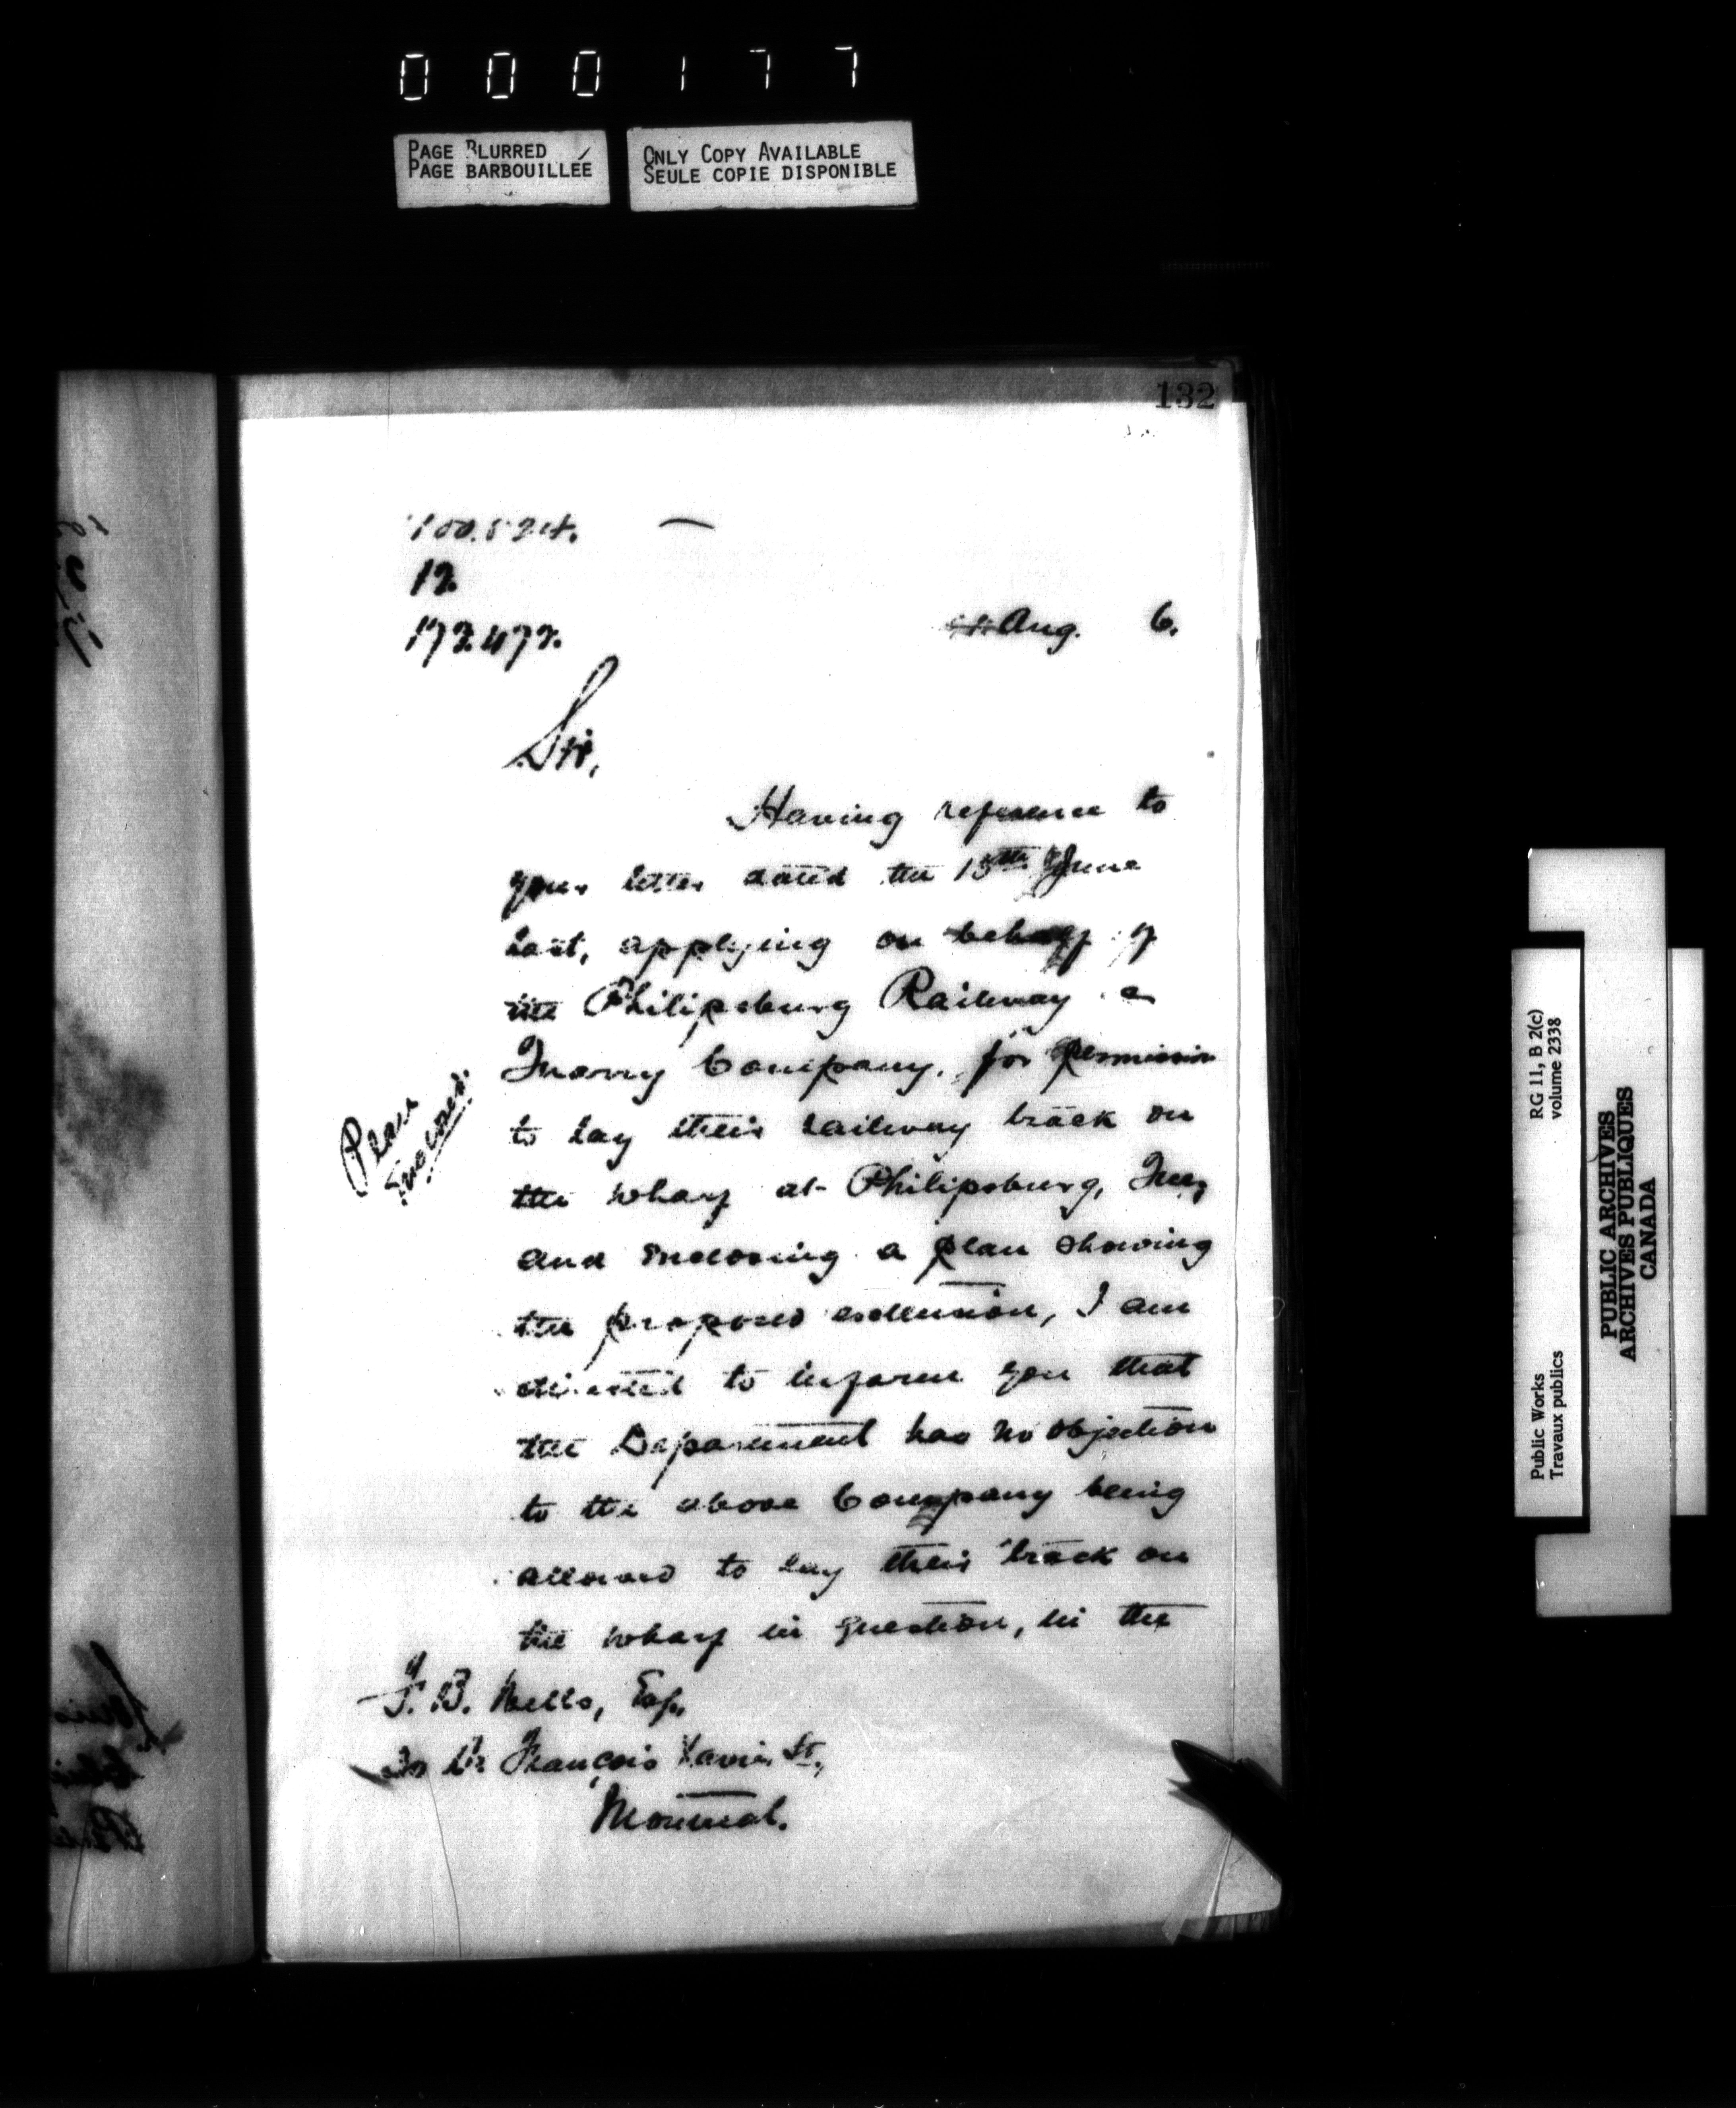 000177
PAGE BLURRED
PAGE BARBOUILLÉE
ONLY COPY AVAILABLE
SEULE COPIE DISPONIBLE
132
12.
Aug. 6.
Sir,
Having reference to
your letter dated the 15th June
last, applying on behalf of
the Philipsburg Railway &
Quarry Company, for permission
to lay their railway track on
the wharf at Philipsburg, Que,
and inclosing a plan showing
the proposed extension, I am
directed to inform you that
the Department has no objection
to the above Company being
allowed to lay their track on
the wharf in question, in the
Plan
Inclosed.
F. B. Wells, Esq.,
François Xavier St.,
Montreal.
RG 11, B 2(c)
volume 2338
Public Works
Travaux publics
PUBLIC ARCHIVES
ARCHIVES PUBLIQUES
CANADA